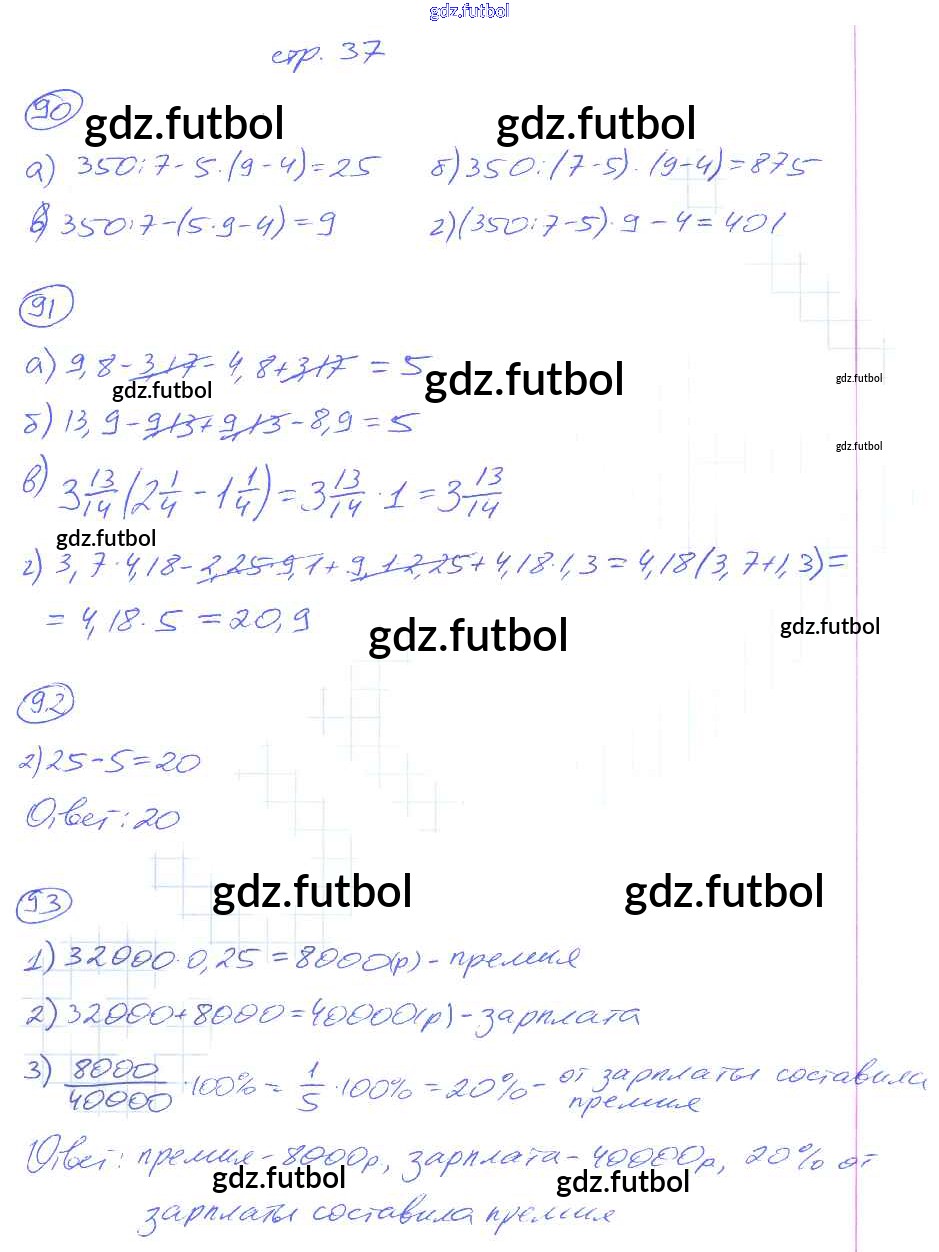 gdz.futbol
стр. 37
90
gdz.futbol gdz.futbol
а) 350:7-5·(9-4)=25 б) 350:(7-5)·(9-4)=875
в) 350:7-(5·9-4)=9 г) (350:7-5)·9-4=401
91
а) 9,8-3,17-4,8+3,17=5
gdz.futbol
gdz.futbol
gdz.futbol
б) 13,9-9,13+9,13-8,9=5
gdz.futbol
в) 3 13/14 (2 1/4 - 1 1/4) = 3 13/14 · 1 = 3 13/14
gdz.futbol
г) 3,7·4,18-2,25·9,1+9,1·2,25+4,18·1,3=4,18(3,7+1,3)=
=4,18·5=20,9
gdz.futbol gdz.futbol
92
г) 25-5=20
Ответ: 20
93
gdz.futbol gdz.futbol
1) 32000·0,25=8000(р)-премия
2) 32000+8000=40000(р)-зарплата
3) 8000/40000 ·100% = 1/5 ·100% = 20% - от зарплаты составила
премия
Ответ: премия-8000р, зарплата-40000р, 20% от
gdz.futbol gdz.futbol
зарплаты составила премия